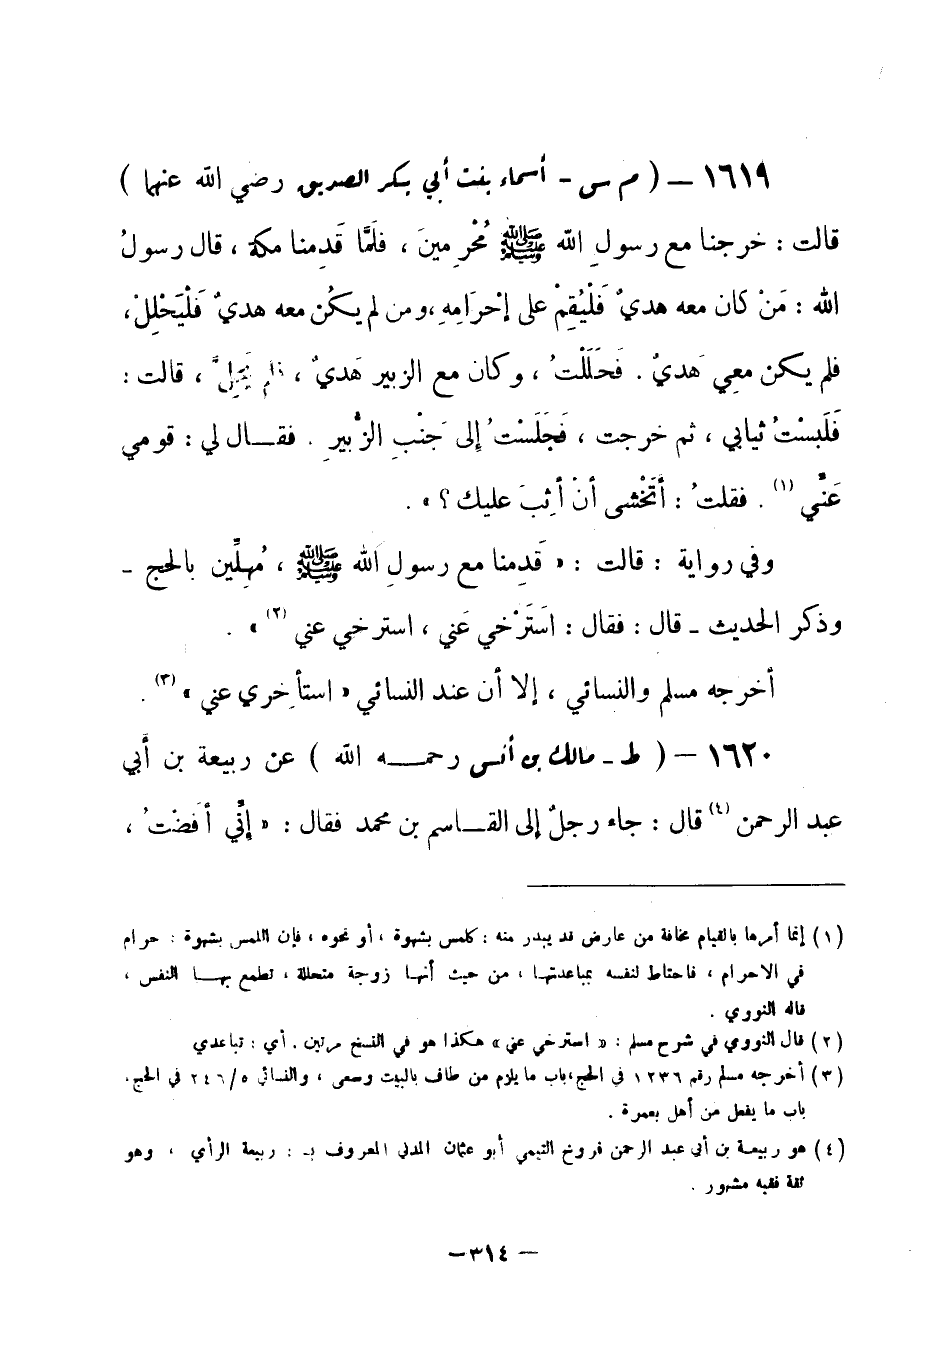 ١٦١٩ – ( م س – أسماء بنت أبي بكر الصديق رضي الله عنهما )
قالت : خرجنا مع رسولِ الله ﷺ مُحْرِمينَ ، فلَمَّا قَدِمنا مكة ، قال رسولُ
الله : مَنْ كان معه هديٌ فَلْيُقِمْ على إحْرَامِهِ ، ومن لم يكُن معه هديٌ فَلْيَحْلِلْ ،
فلم يكن معِي هَديٌ . فَحَلَلْتُ ، وكان مع الزبير هَديٌ ، فلم يَحِلَّ ، قالت :
فَلَبِسْتُ ثيابي ، ثم خرجت ، فَجَلَسْتُ إلى جَنْبِ الزُّبيرِ . فقـال لي : قومي
عَنِّي (١) . فقلتُ : أَتَخْشى أنْ أثِبَ عليك ؟ » .
وفي رواية : قالت : « قَدِمنا مع رسولِ الله ﷺ ، مُهِلِّين بالحج –
وذكر الحديث – قال : فقال : اسْتَرْخي عَني ، استرخي عني (٢) » .
أخرجه مسلم والنسائي ، إلا أن عند النسائي « استأخِري عني » (٣) .
١٦٢٠ – ( ط – مالك بن أنس رحمـه الله ) عن ربيعة بن أبي
عبد الرحمن (٤) قال : جاء رجلٌ إلى القـاسم بن محمد فقال : « إنِّي أفَضْتُ ،
(١) إنما أمرها بالقيام مخافة من عارض قد يبدر منه : كلمس بشهوة ، أو نحوه ، فإن اللمس بشهوة : حرام
في الاحرام ، فاحتاط لنفسه بمباعدتها ، من حيث أنها زوجة متحللة ، تطمع بهـا النفس ،
قاله النووي .
(٢) قال النووي في شرح مسلم : « استرخي عني » هكذا هو في النسخ مرتين . أي : تباعدي
(٣) أخرجه مسلم رقم ١٢٣٦ في الحج ، باب ما يلزم من طاف بالبيت وسعى ، والنسائي ٢٤٦/٥ في الحج ،
باب ما يفعل من أهل بعمرة .
(٤) هو ربيعة بن أبي عبد الرحمن فروخ التيمي أبو عثمان المدني المعروف بـ : ربيعة الرأي ، وهو
ثقة فقيه مشهور .
– ٣١٤ –